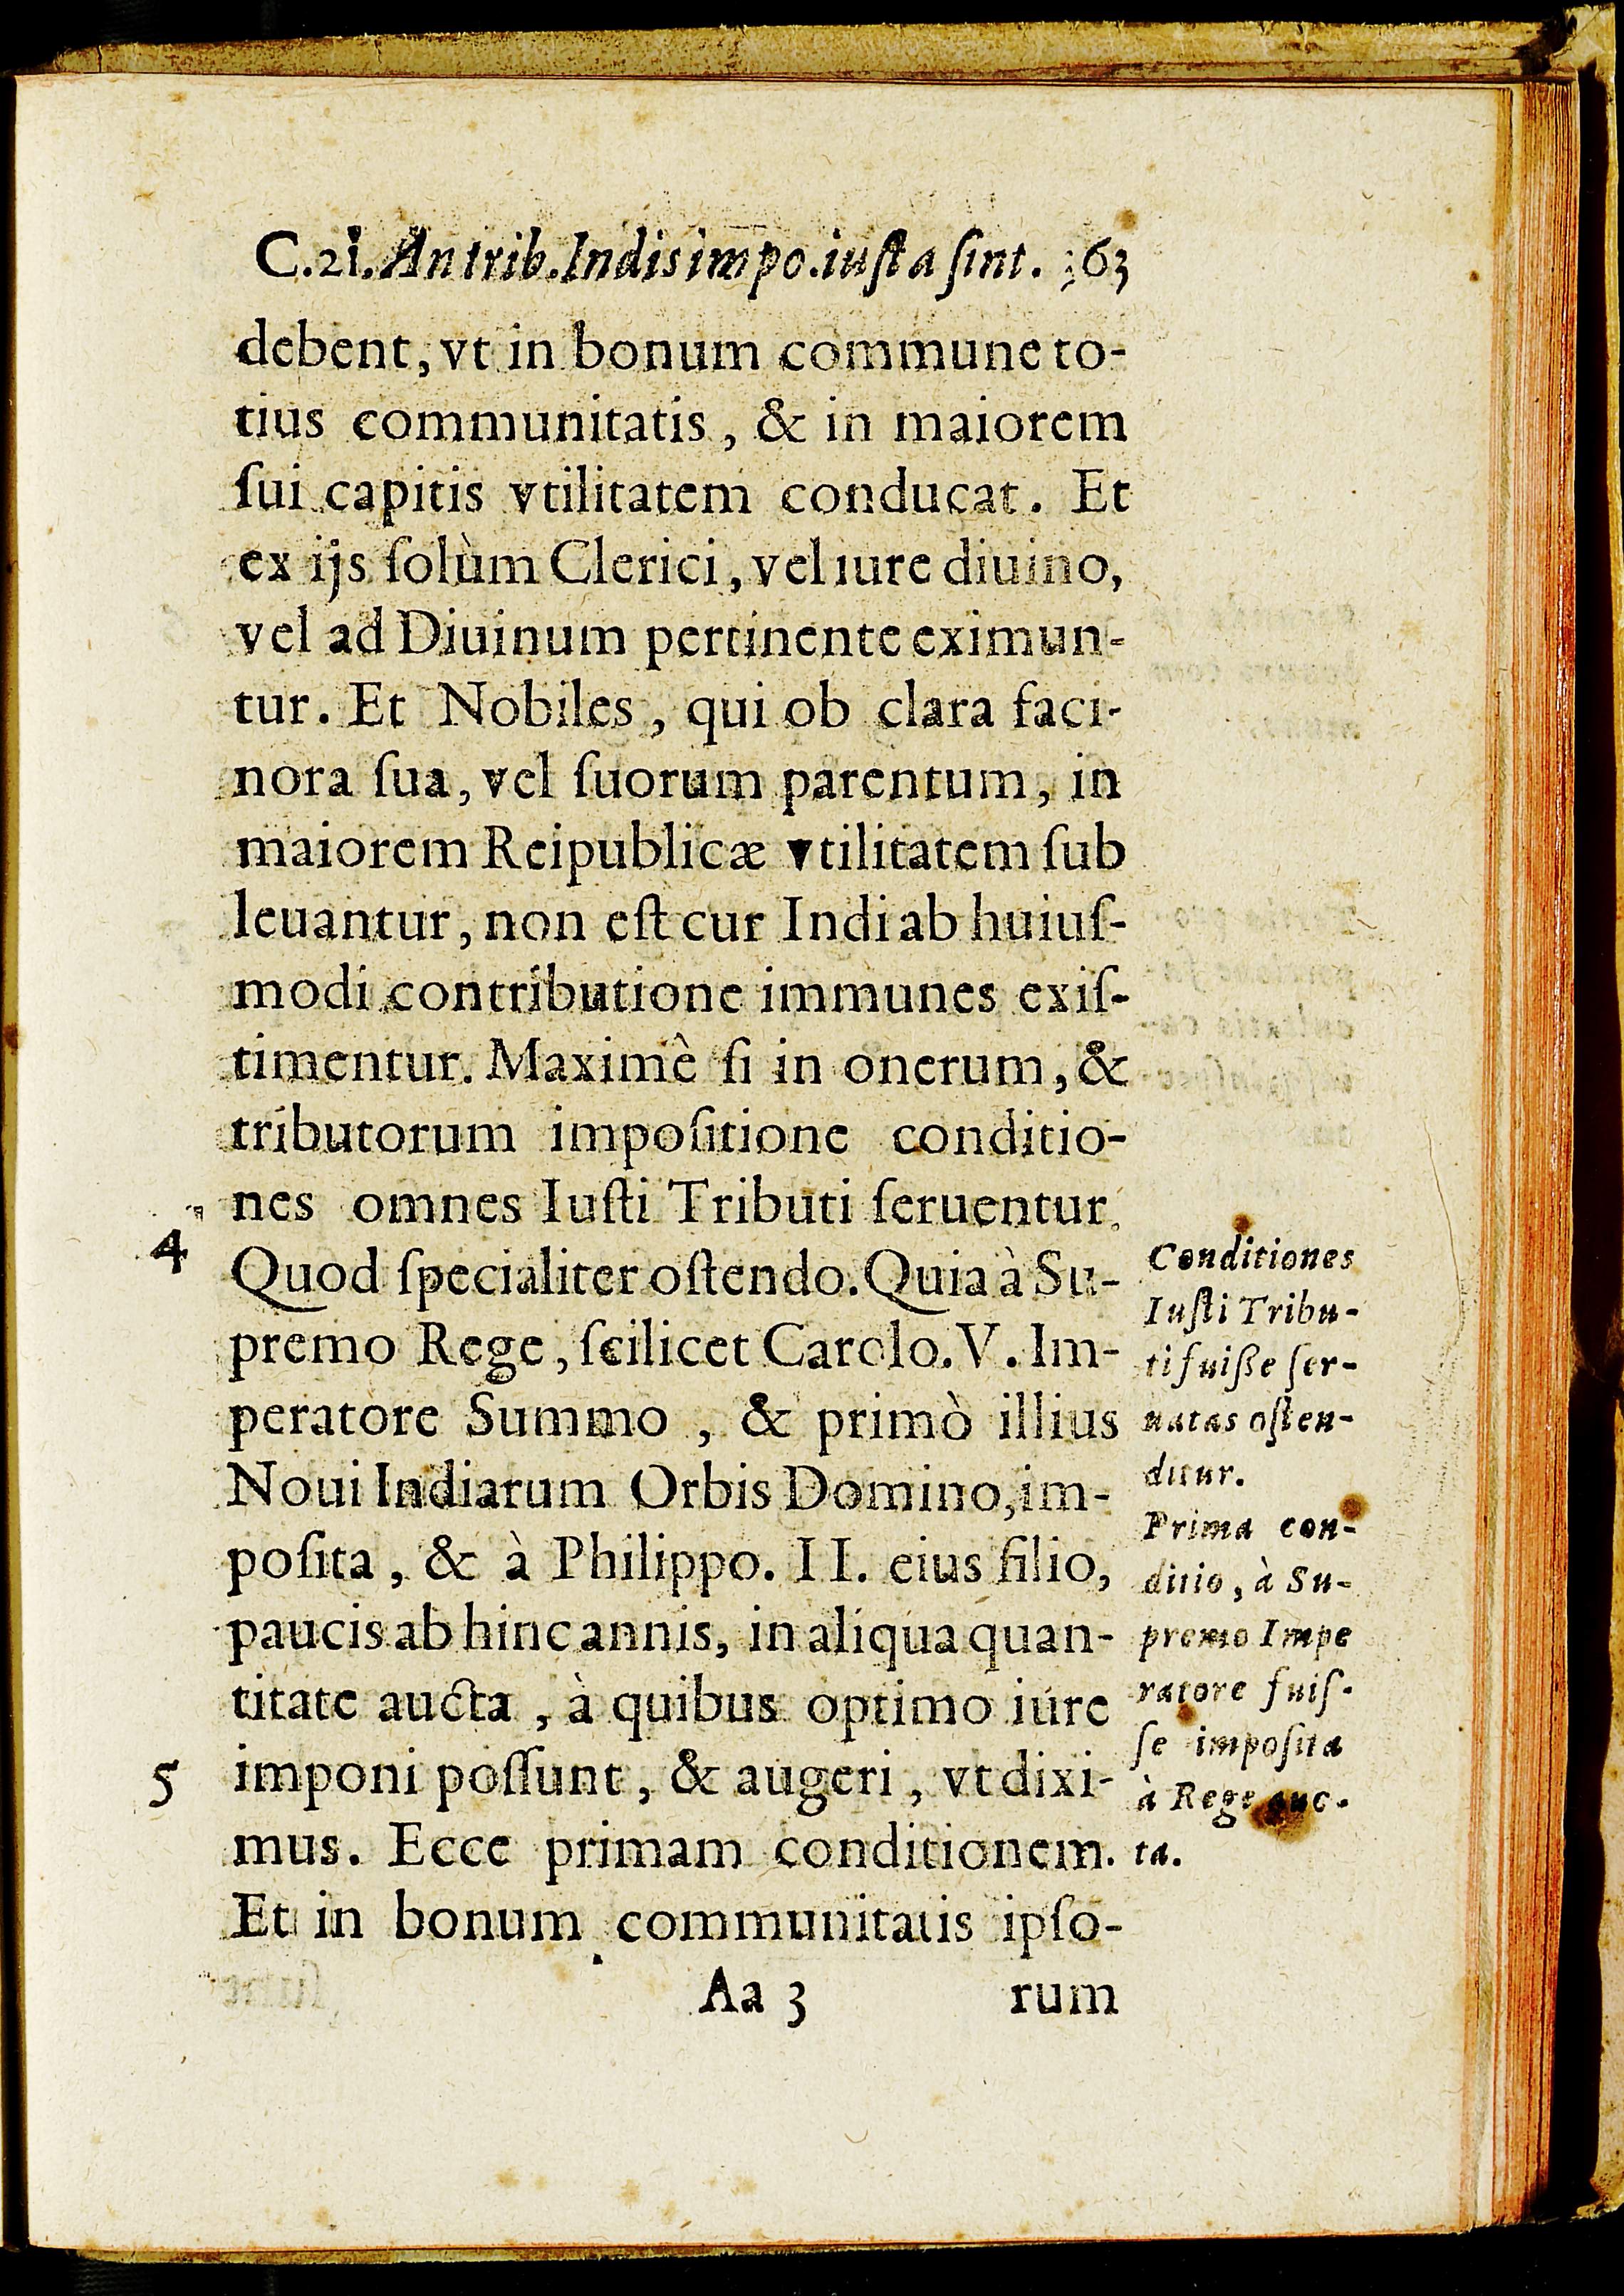 C.21. An trib. Indis impo. iuſta ſint. 363
debent, vt in bonum commune to-
tius communitatis, & in maiorem
ſui capitis vtilitatem conducat. Et
ex ijs ſolùm Clerici, vel iure diuino,
vel ad Diuinum pertinente eximun-
tur. Et Nobiles, qui ob clara faci-
nora ſua, vel ſuorum parentum, in
maiorem Reipublicæ vtilitatem ſub
leuantur, non eſt cur Indi ab huiuſ-
modi contributione immunes exiſ-
timentur. Maximè ſi in onerum, &
tributorum impoſitione conditio-
nes omnes Iuſti Tributi ſeruentur.
4
Quod ſpecialiter oſtendo. Quia à Su-
premo Rege, ſcilicet Carolo. V. Im-
peratore Summo, & primò illius
Noui Indiarum Orbis Domino, im-
poſita, & à Philippo. II. eius filio,
paucis ab hinc annis, in aliqua quan-
titate aucta, à quibus optimo iure
5
imponi poſſunt, & augeri, vt dixi-
mus. Ecce primam conditionem.
Et in bonum communitatis ipſo-
Aa 3 rum
Conditiones
Iuſti Tribu-
ti fuiße ſer-
uatas oſten-
ditur.
Prima con-
ditio, à Su-
premo Impe
ratore fuiſ-
ſe impoſita
à Rege auc-
ta.